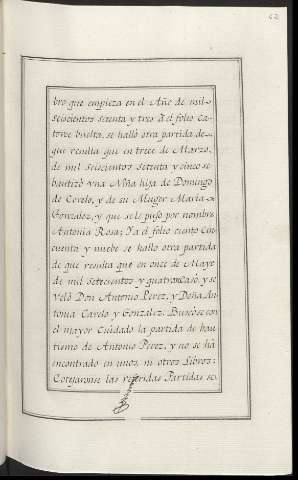 62
bro que empieza en el Año de mil
seiscientos setenta y tres à el folio ca-
torce buelta, se halló otra partida de
que resulta que in trece de Marzo,
de mil seiscientos setenta y cinco se
bautizó una Niña hija de Domingo
de Corelo, y de su Muger Maria
Gonzalez, y que se le puso por nombre
Antonia Rosa; Y a el folio ciento cin-
cuenta y nuebe se hallo otra partida
de que resulta que en once de Mayo
de mil setecientos y quatro casó, y se
Veló Don Antonio Perez, y Doña An-
tonia Carelo y Gonzalez. Buscòse con
el mayor Cuidado la partida de bau-
tismo de Antonio Perez, y no se há
encontrado en unos, ni otros Libros:
Cotejaronse las referidas Partidas se-